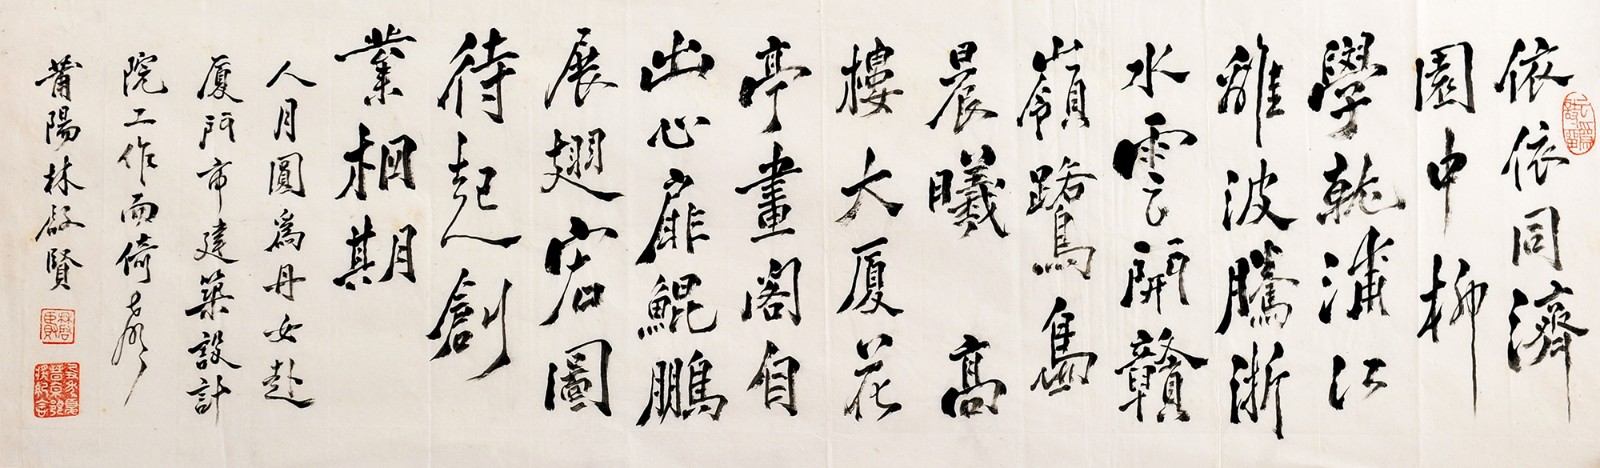 依依同濟
園中柳
學就浦江
離波騰浙
水雲開贛
嶺鷺島
晨曦 高
樓大厦花
亭畫閣自
出心扉鯤鵬
展翅宏圖
待起創
業相期
人月圓為丹女赴
厦門市建築設計
院工作而倚聲
莆陽林啟賢